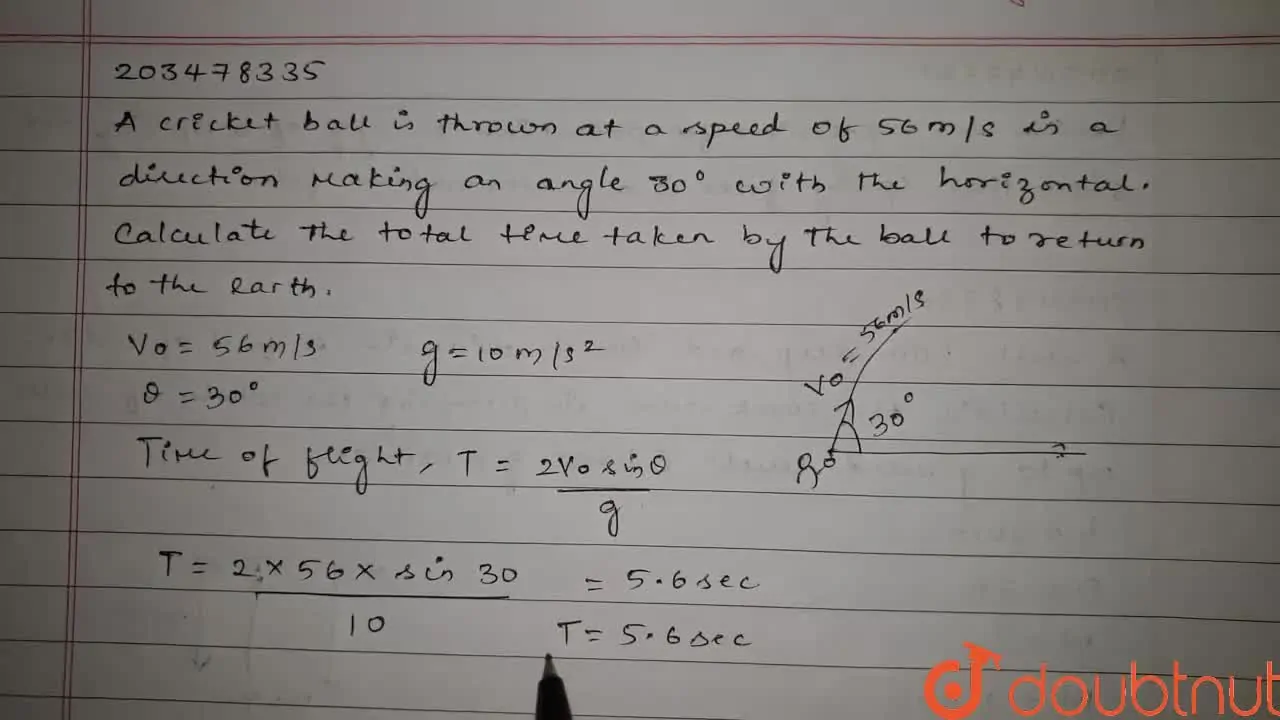 203478335
A cricket ball is thrown at a speed of 56 m/s is a
direction making an angle 30° with the horizontal.
Calculate the total time taken by the ball to return
to the earth.
V0 = 56 m/s g = 10 m/s²
θ = 30°
V0 = 56 m/s
30°
Time of flight, T = 2V0 sinθ
g
T = 2 × 56 × sin 30 = 5.6 sec
10
T = 5.6 sec
doubtnut